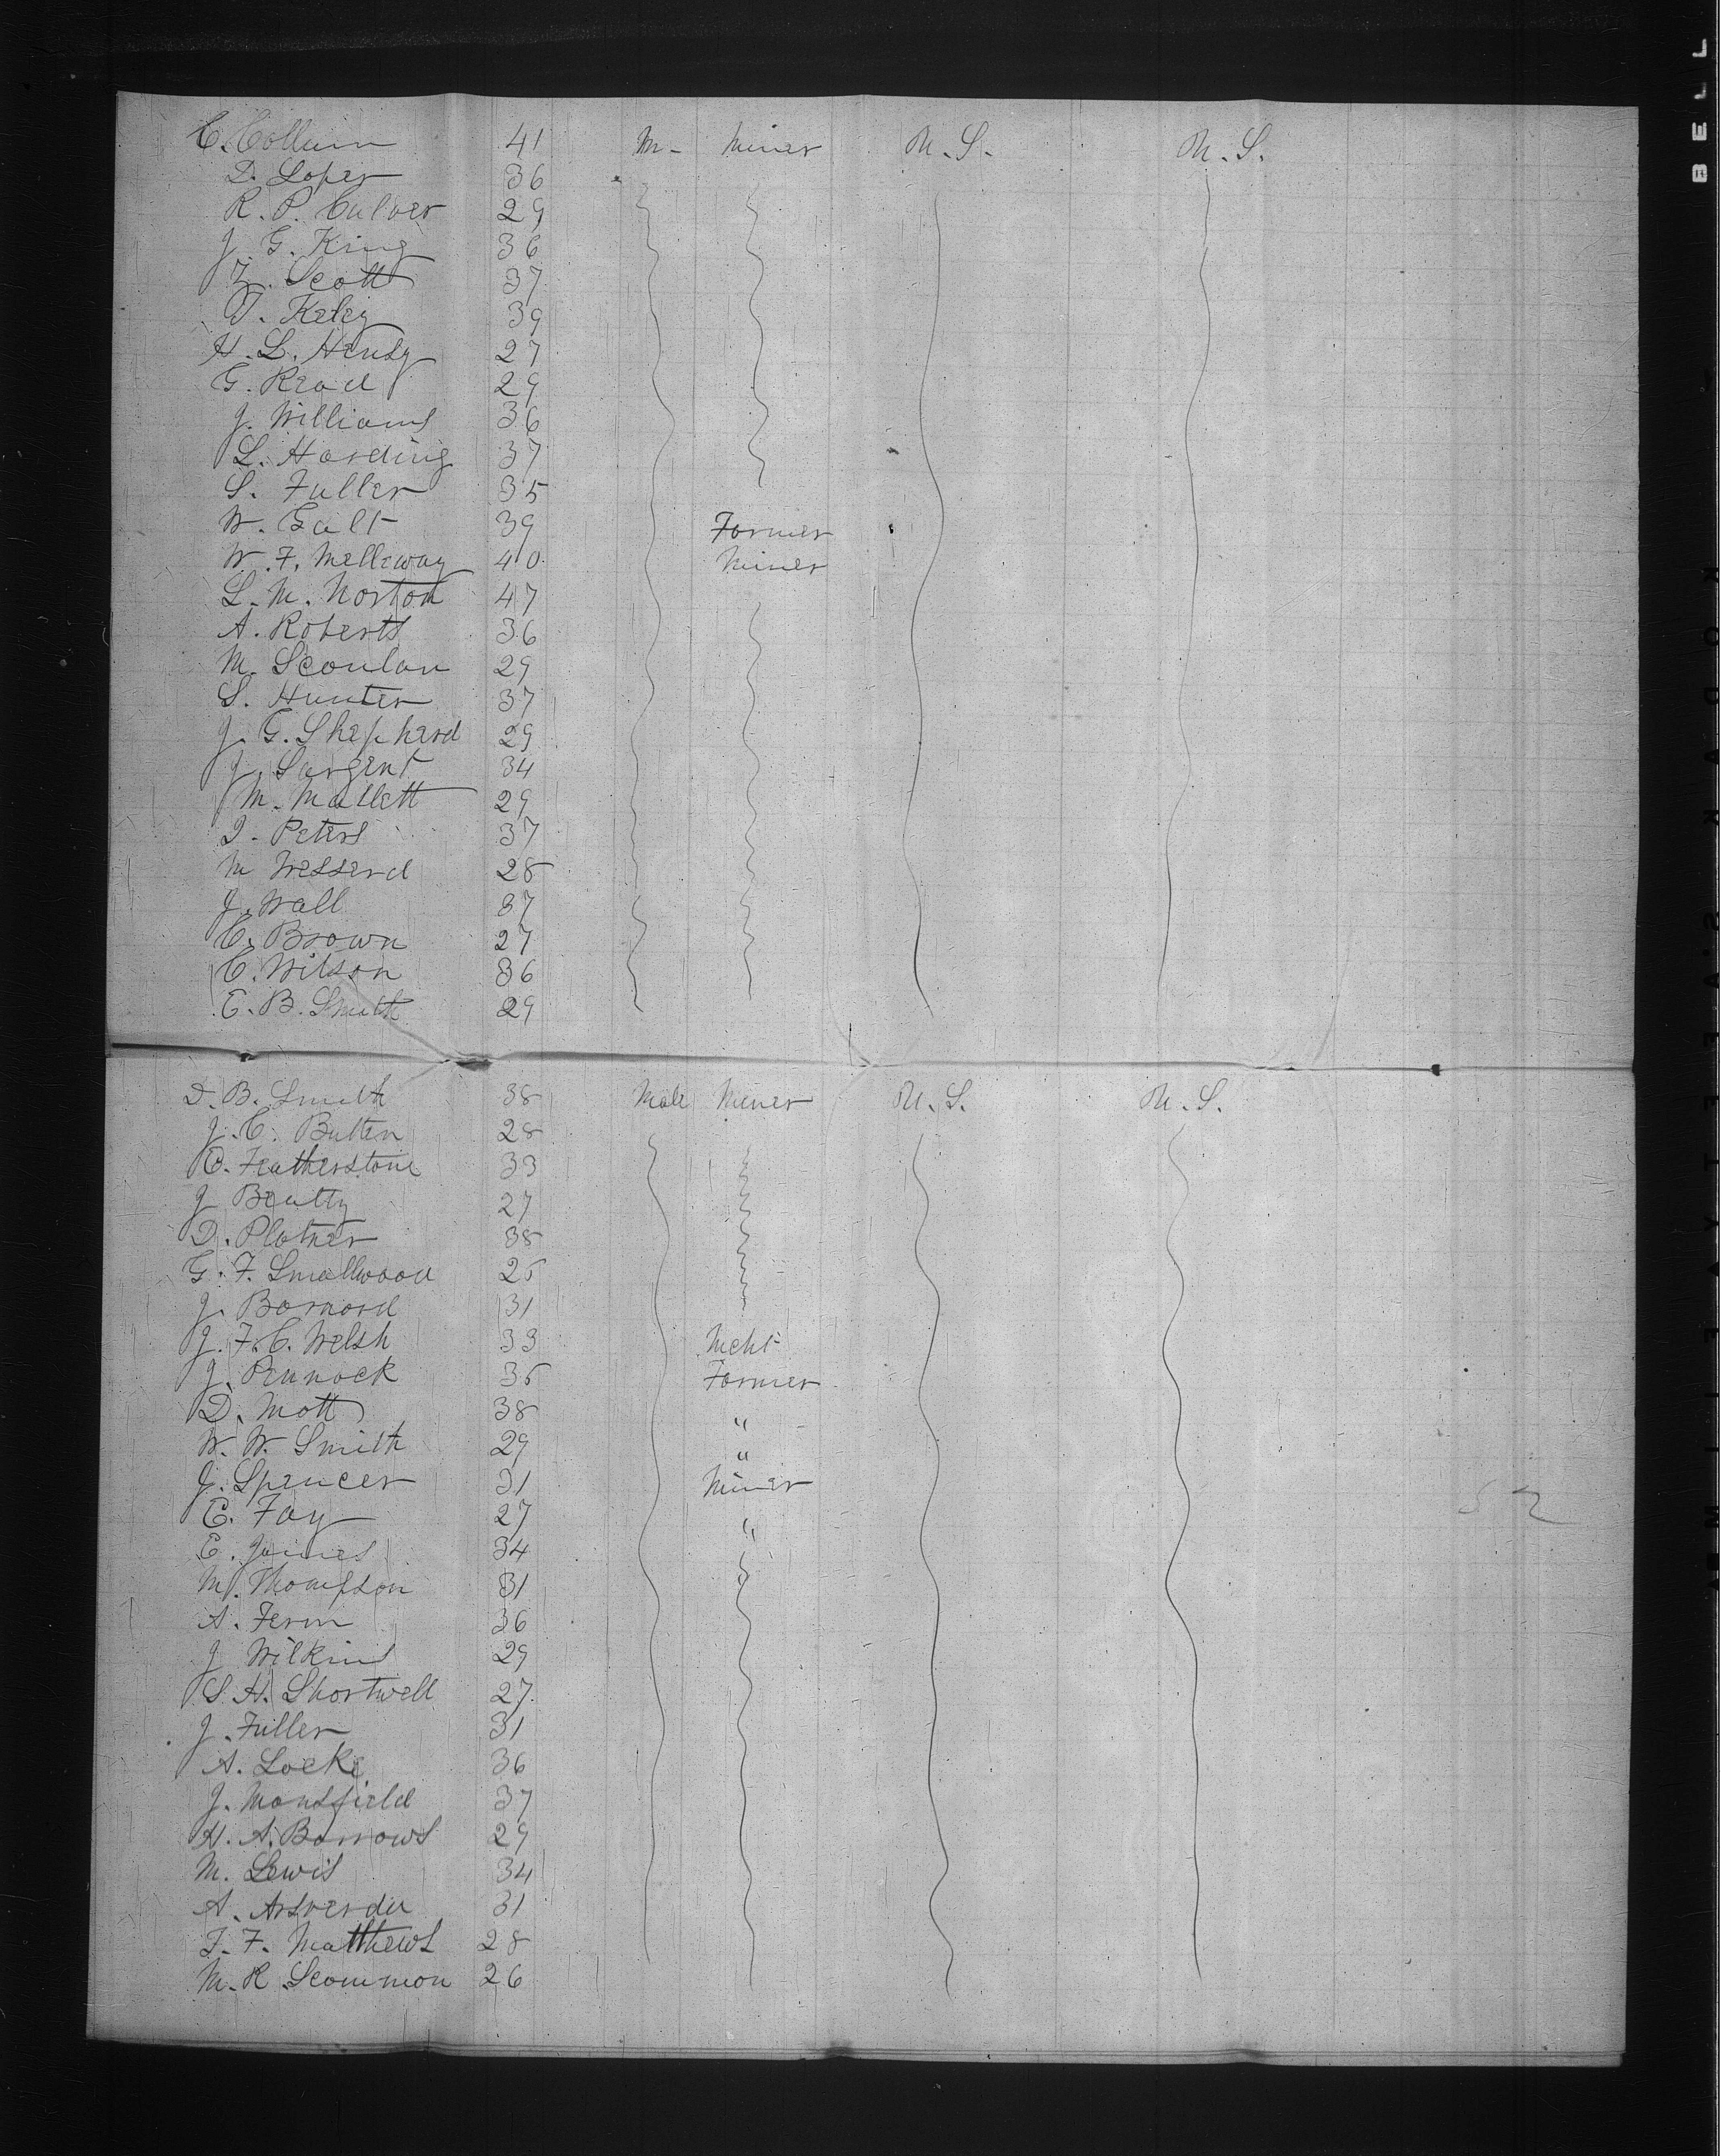 C. Collum 41 M- Miner U.S. U.S.
D. Loper 36
R. P. Culver 29
J. G. King 36
Z. Scott 37
T. Keley 39
H. L. Hendy 27
G. Read 29
J. Williams 36
L. Harding 37
S. Fuller 35
W. Galt 39 Farmer
W. F. Melleway 40 Miner
L. M. Norton 47
A. Roberts 36
M. Scanlan 29
S. Hunter 37
J. G. Shepherd 29
J. Sargent 34
M. Mallett 29
I. Peters 37
M Wesserd 28
J. Wall 37
C. Brown 27
C. Wilson 36
E. B. Smith 29
D. B. Smith 38 Male Miner U.S. U.S.
J. C. Butten 28
C. Featherstone 33
J Beatty 27
D. Platner 38
G. F. Smallwood 25
J. Barnard 31
J. F. C. Welsh 33 Mcht
J. Pennock 35 Farmer
D. Mott 38 "
W. W. Smith 29 "
J. Spencer 31 Miner
E. Fay 27 "
E. James 34
M. Thompson 31
A. Ferin 36
J Wilkins 29
S. H. Shortwell 27
J. Fuller 31
A. Locke 36
J. Mansfield 37
H. A. Barrows 29
M. Lewis 34
A. 31
T. F. Matthews 28
M. R Scammon 26
52
BELL